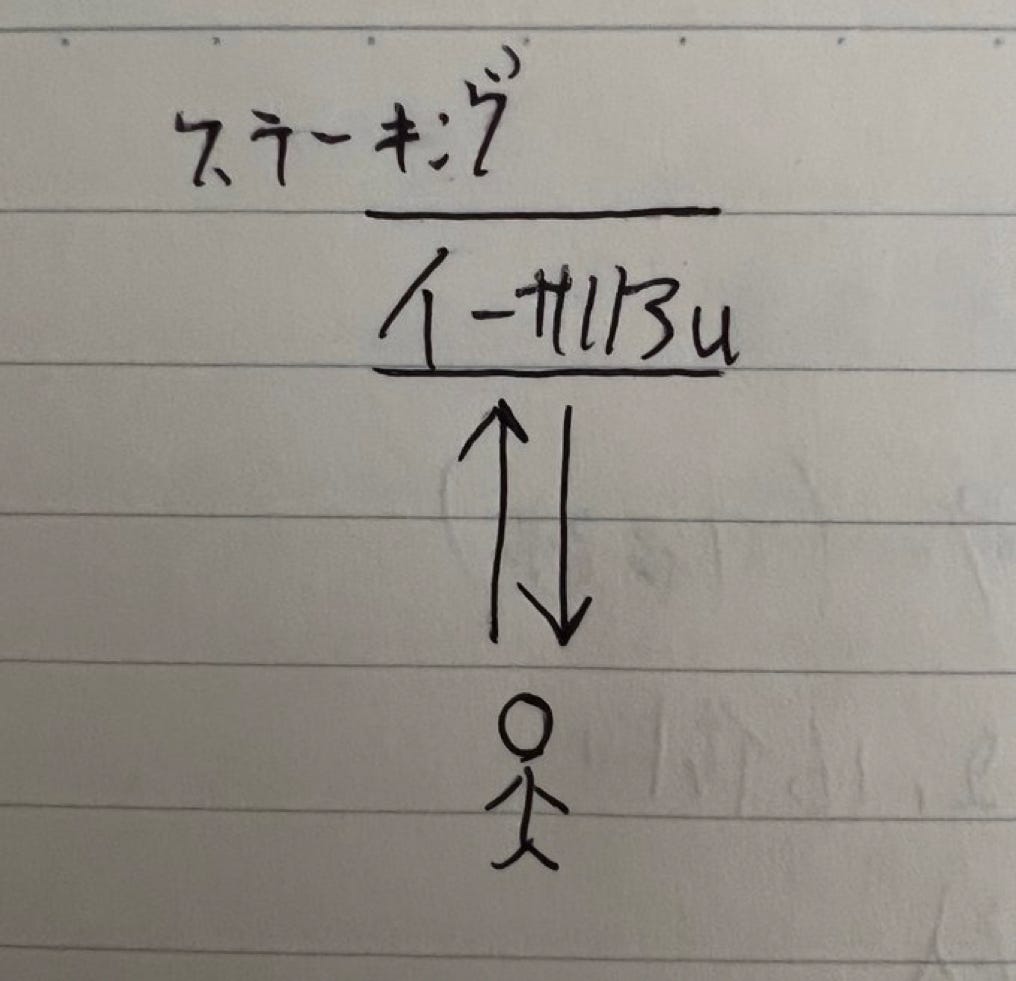 ステーキング
イーサリアム